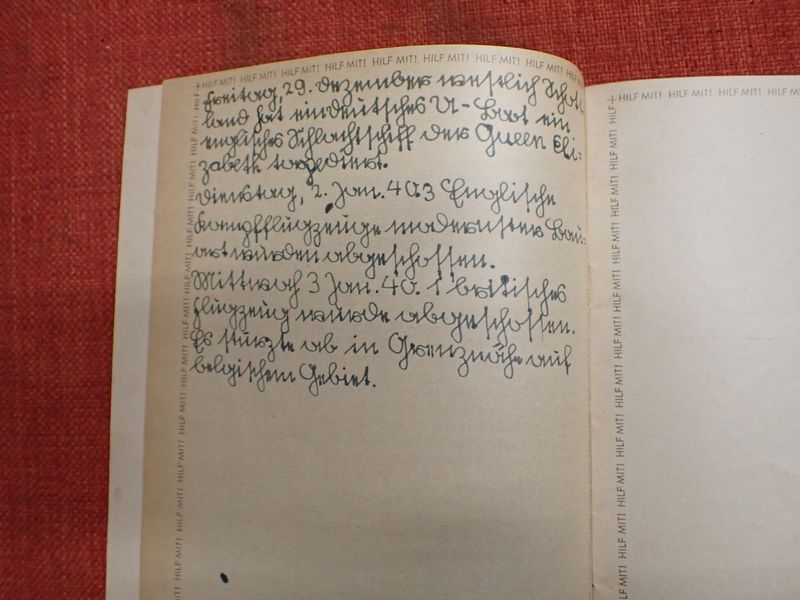 + HILF MIT! HILF MIT! HILF MIT! HILF MIT! HILF MIT! HILF MIT! HILF MIT! HILF MIT! HILF MIT! HILF
Freitag, 29. Dezember westlich Schott-
land hat ein deutsches U-Boot ein
englisches Schlachtschiff der Queen Eli-
zabeth torpediert.
Dienstag, 2. Jan. 40. 3 Englische
Kampfflugzeuge modernster Bau-
art wurden abgeschossen.
Mittwoch 3 Jan. 40. 1 britisches
Flugzeug wurde abgeschossen.
Es stürzte ab in Grenznähe auf
belgischem Gebiet.
HILF MIT! HILF MIT! HILF MIT! HILF MIT! HILF MIT! HILF MIT! HILF MIT! HILF MIT!
+ HILF MIT! HILF MIT! HILF MIT! HILF MIT! HILF
HILF MIT! HILF MIT! HILF MIT! HILF MIT! HILF MIT! HILF MIT! HILF MIT! HILF MIT!